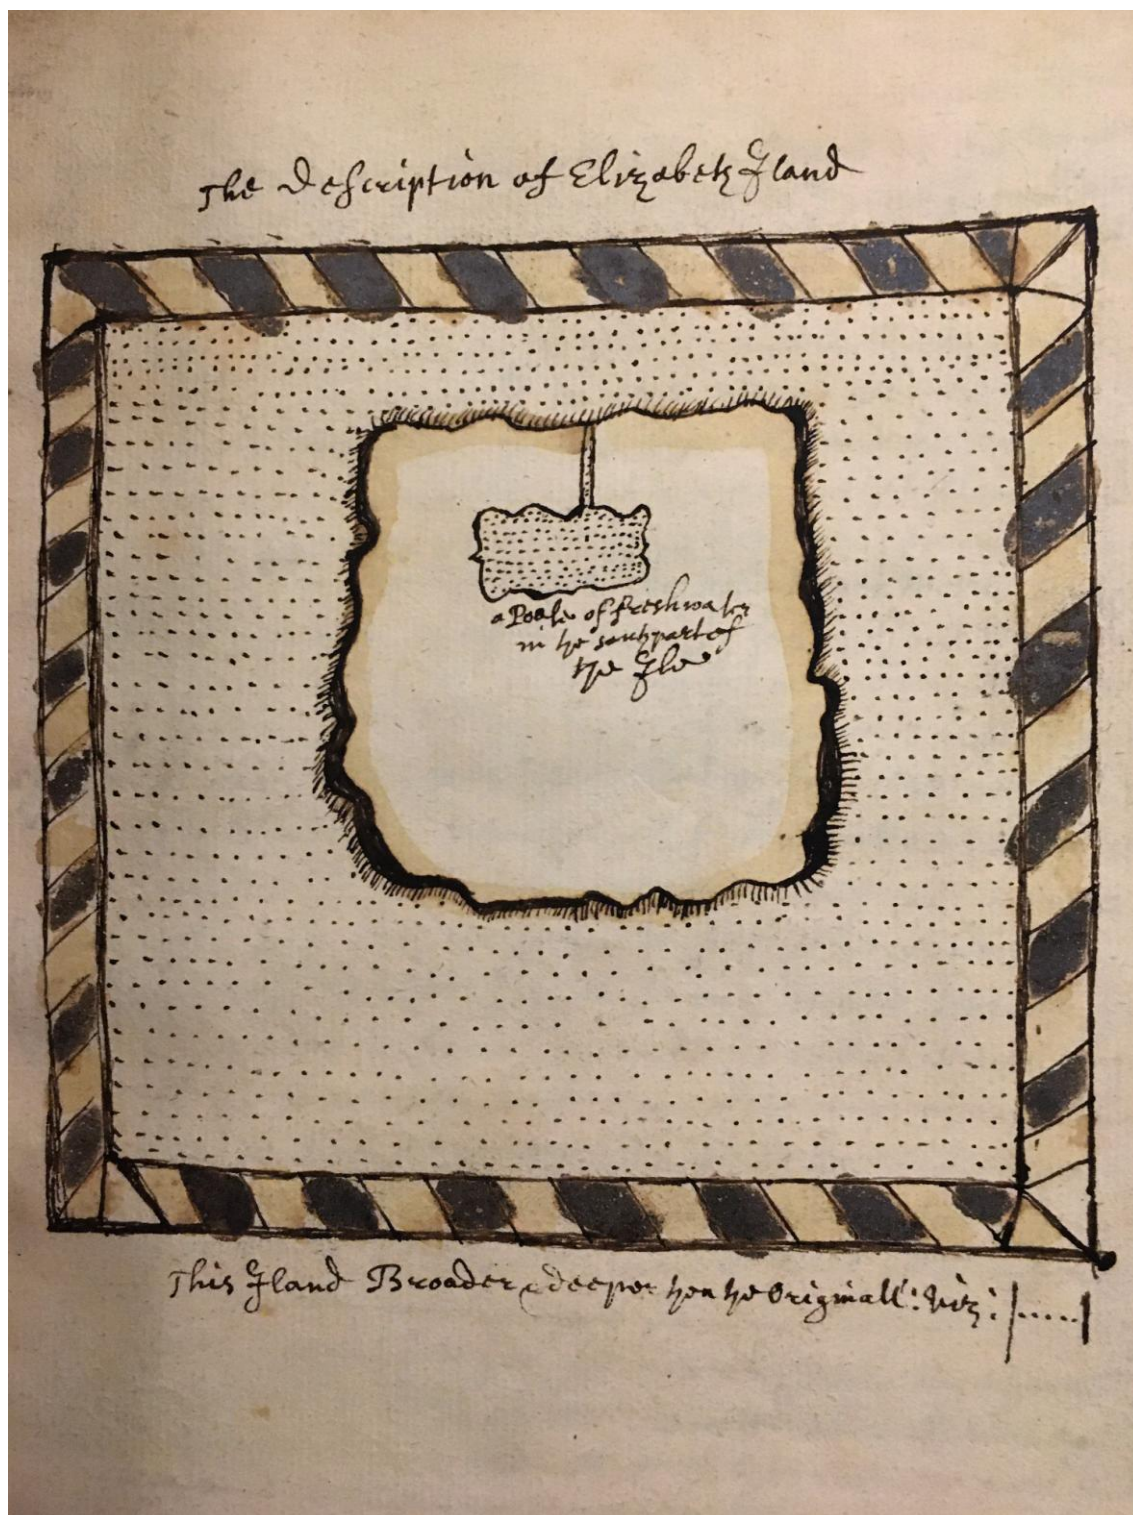 The Description of Elizabeth Iland
a Poole of freshwater
in the south part of
the Ile
This Iland Broader & deeper then the Originall: viz: